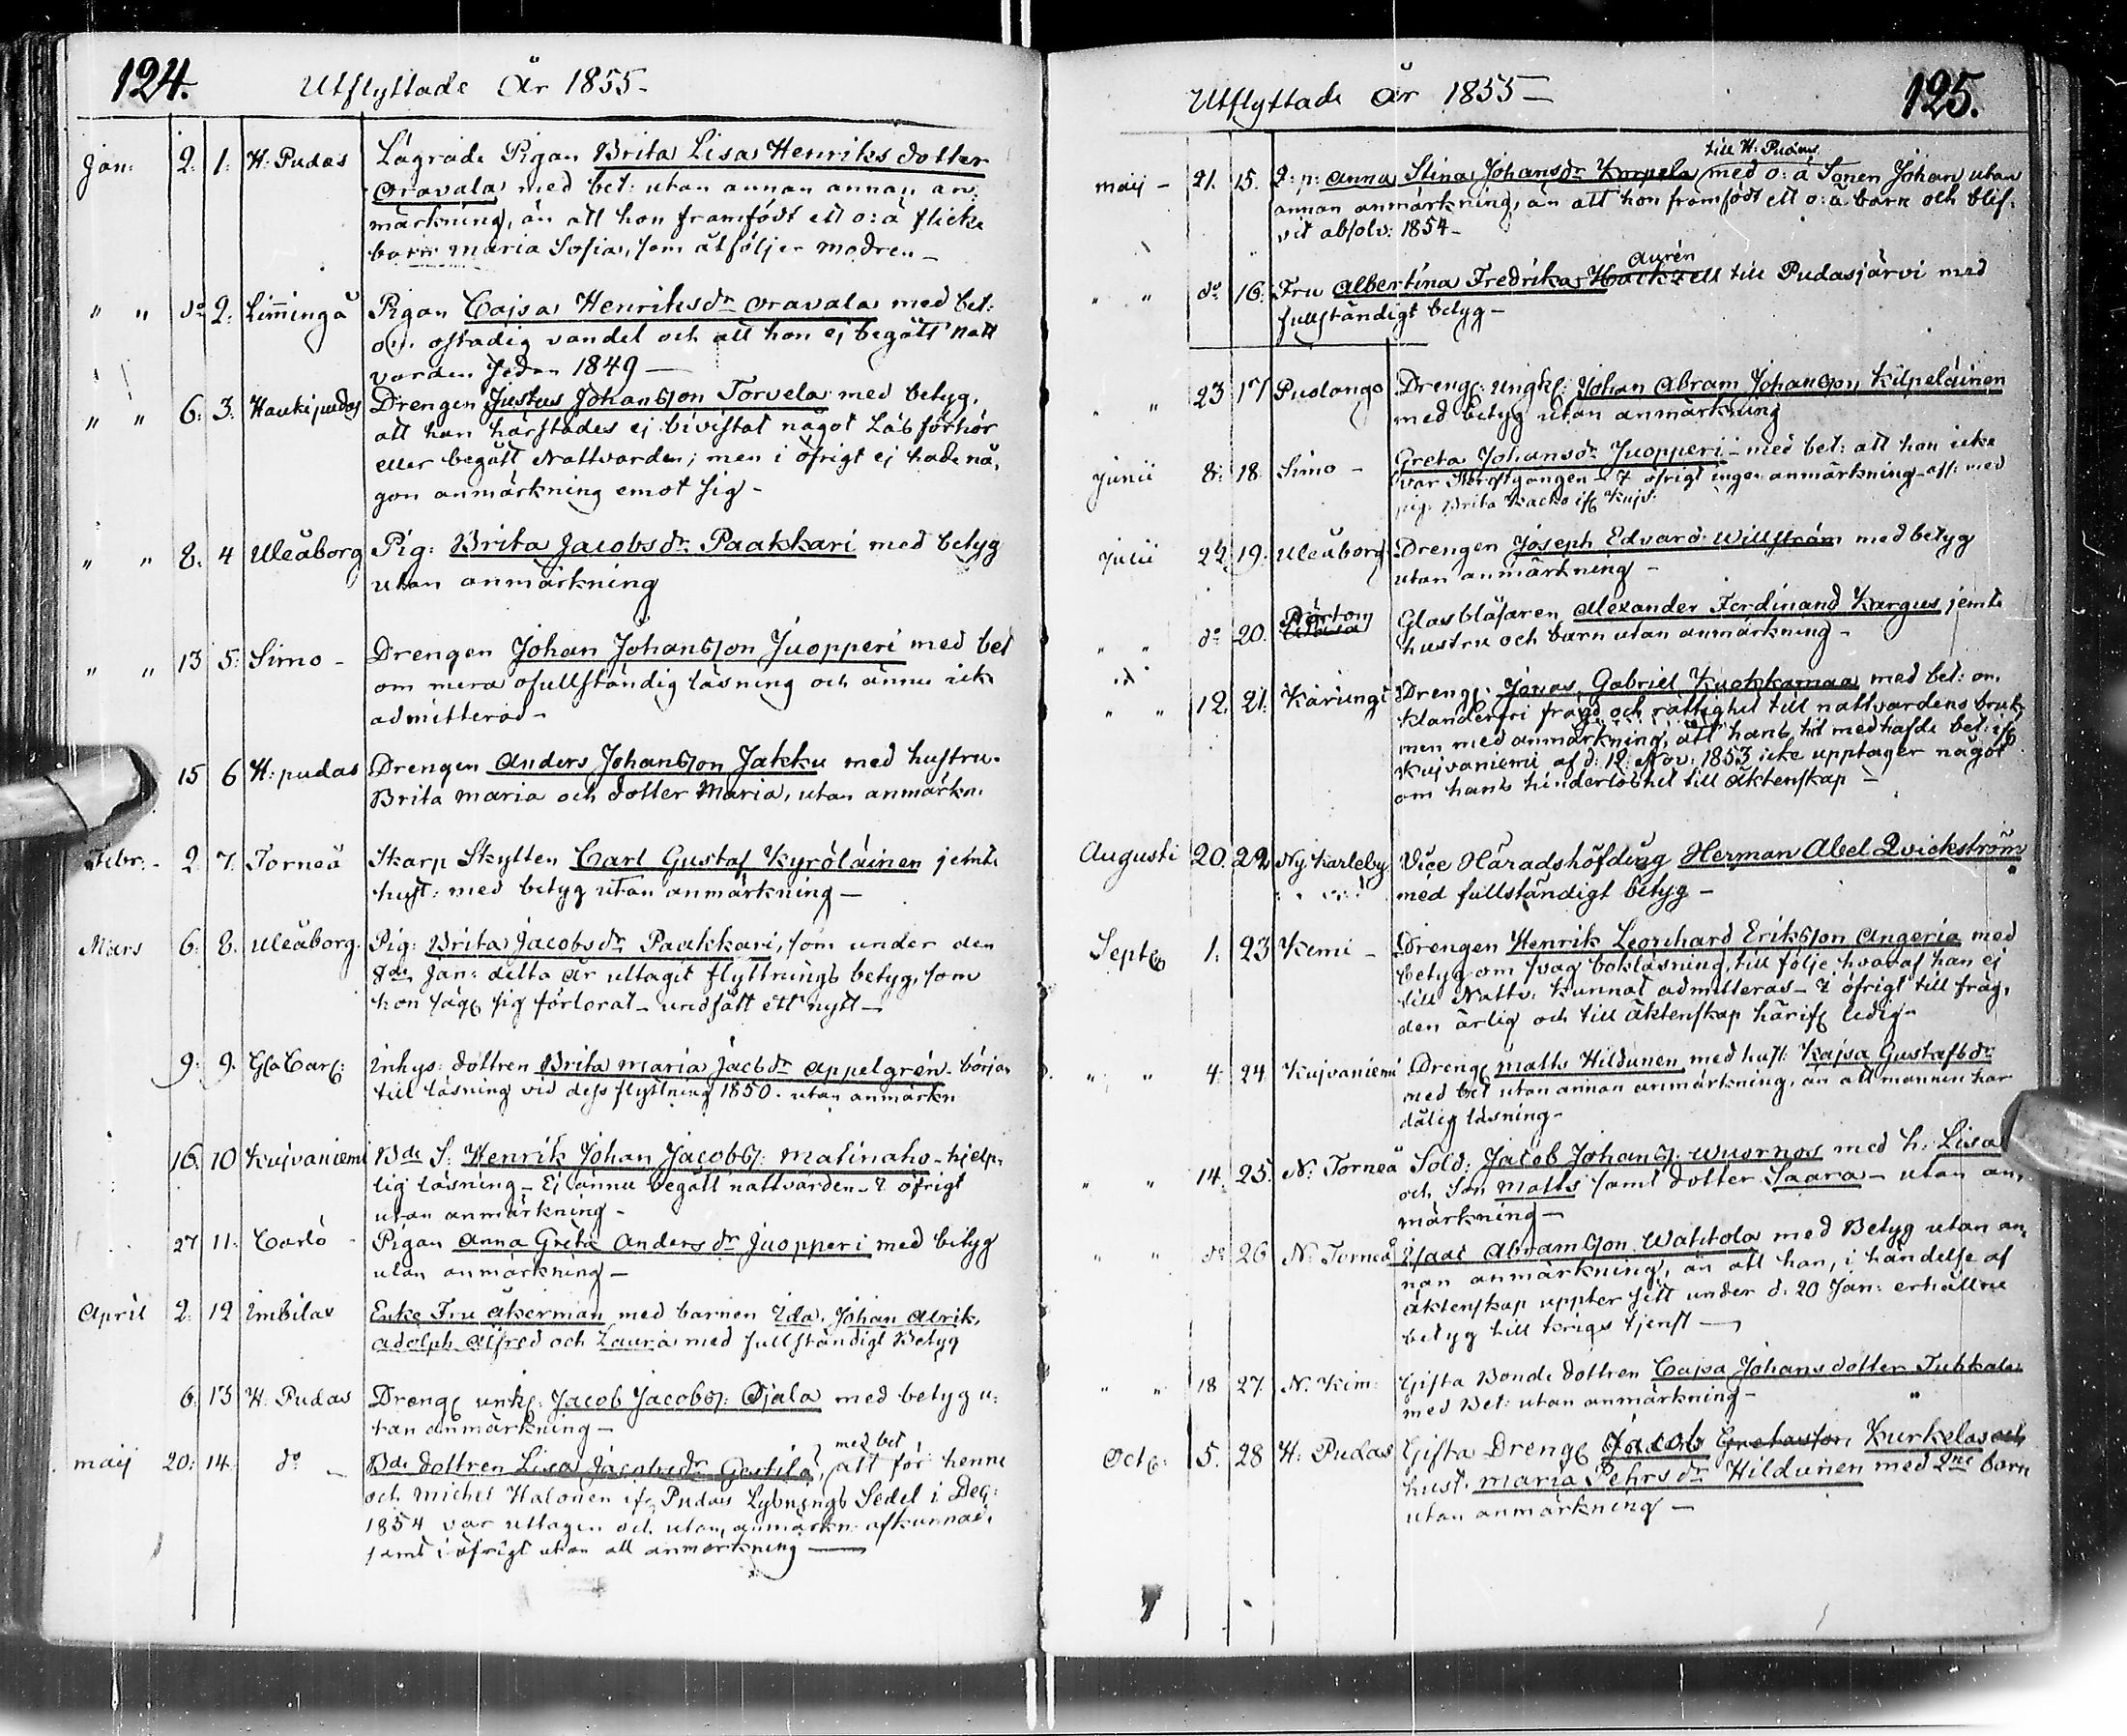 124.
Utflyttade År 1855-
Jan: 2. 1. H. Pudas Lägrade Pigan Brita Lisa Henriks dotter
Oravala, med bet: utan annan annan an-
märkning, än att hon framfödt ett o: ä flicke
barn Maria Sofia, som åtföljer modren-
" " do 2. Liminga Pigan Cajsa Henriksdr Oravala med bet:
om ostadig vandel och att hon ej begått natt
varden sedan 1849 —
" " 6. 3. Haukipudas Drengen Justus Johansson Torvela med betyg,
att han härstädes ej bivistat något Läsförhör
eller begått Nattvarden; men i öfrigt ej hade nå,
gon anmärkning emot sig-
" " 8. 4 Uleåborg Pig: Brita Jacobsdr Paakkari med betyg
utan anmärkning
" " 13 5: Simo - Drengen Johan Johansson Juopperi med bet
om mera ofullständig läsning och ännu icke
admitterad-
15 6 H: pudas Drengen Anders Johansson Jakku med hustru.
Brita Maria och dotter Maria, utan anmärkn.
Febr: - 2 7. Torneå Skarp Skytten Carl Gustaf Kyröläinen jemte
hust: med betyg utan anmärkning —
Mars 6: 8. Uleåborg. Pig: Brita Jacobsdr Paakkari, som under den
8de Jan: detta år uttagit flyttnings betyg, som
hon säg sig förlorat - undfått ett nytt —
9: 9. Gla Carl: Inhys: dottren Brita Maria Jacbdr Appelgrén. börjar
till läsning vid dess flyttning 1850. utan anmärkn
16. 10 Kujvaniemi Bde S: Henrik Johan Jacobs: Matinaho - hjelp,
lig läsning - Ej ännu begått nattvarden - I öfrigt
utan anmärkning-
27 11. Carlö - Pigan Anna Greta Andersdr Juopperi med betyg
utan anmärkning —
April 2. 12 Imbilax Enke Fru Åkerman med barnen Ida, Johan Alrik,
Adolph Alfred och Laura med fullständigt Betyg
6. 13 H. Pudas Dreng unk: Jacob Jacobs: Ojala med betyg u:
tan anmärkning —
med bet
Maij 20: 14. do - Bde dottren Lisa Jacobsdr Gertilä, att för henne
och Michel Halonen if. Pudas Lysnings Sedel i Dec:
1854 var uttagen och utan anmärkn. afkunnad,
samt i öfrigt utan all anmärkning —
Utflyttade år 1855 —
125.
till H: Pudas
Maij - 21. 15. Q: p: Anna Stina Johansdr Korpela med o: ä Sonen Johan utan
annan anmärkning, än att hon framfödt ett o: ä barn och blif:
vit absolv: 1854-
Aurén
" " do 16. Fru Albertina Fredrika Hackzell till Pudasjärvi med
fullständigt betyg -
" " 23 17 Pudolango Dreng: ungk: Johan Abram Johansson Kilpeläinen
med betyg utan anmärkning
Junii 8: 18. Simo - Greta Johansdr Juopperi - med bet: att hon icke
var - I öfrigt ingen anmärkning -
pig Brita
Julii 24 19. Uleåborg Drengen Joseph Edvard Willström med betyg
utan anmärkning -
Pörtom
" " do 20. Wasa Glasblåsaren Alexander Ferdinand Kargus jemte
hustru och barn utan anmärkning -
" " 12. 21. Karungi Dreng: Jonas Gabriel Kuokkamaa med bet: om
klanderfri frägd och rättighet till nattvardens bruk,
men med anmärkning, att hans hit medhafde bet: if
Kujvaniemi af d: 12 Nov: 1853 icke upptager något
om hans hinderlöshet till äktenskap —
Augusti 20. 22 Ny Karleby Vice Häradshöfding Herman Abel Qvickström
med fullständigt betyg -
Sept 1. 23 Kemi - Drengen Henrik Leonhard Eriksson Angeria med
betyg om svag bokläsning, till följe hvaraf han ej
till Nattv: kunnat admitteras - I öfrigt till fräg,
den ärlig och till äktenskap härif ledig-
" " 4. 24. Kujvaniemi Dreng Matts Hildunen med hust: Kajsa Gustafsdr
med bet utan annan anmärkning, än att mannen har
dålig läsning-
" " 14. 25. N. Torneå Sold: Jacob Johans: Wuornos med h: Lisa
och Son Matts samt dotter Saara - utan an,
märkning —
" " do 26 N. Torneå Isaac Abramsson Wahtola med Betyg utan an,
nan anmärkning, än att han, i händelse af
äktenskap uppter sitt under d. 20 Jan: erhållne
betyg till krigs tjenst —
" " 18 27. N. Kim: Gifta Bonde dottren Cajsa Johans dotter Tuhkala
med Bet: utan anmärkning -
Oct: 5. 28 H: Pudas Gifta Dreng Jacob Gustafson Kurkela och
hust. Maria Pehrsdr Hildunen med 2ne barn
utan anmärkning —